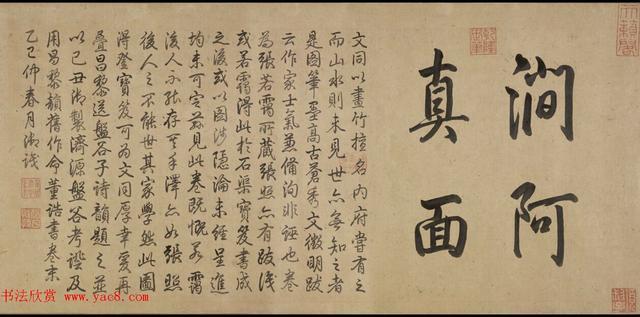 澗阿
真面
文同以畫竹擅名内府嘗有之
而山水則未見世亦無知之者
是圖筆墨高古蒼秀文徵明跋
云作家士氣兼備洵非誣也卷
為張若靄所藏張照亦有跋
或若靄得此於石渠寶笈書成
之後或以圖涉隱淪未經呈進
均未可定茲見此卷既慨若靄
後人不能存其手澤亦如張照
後人之不能世其家學然此圖
得登寶笈可為文同厚幸爰再
疊昌黎送盤谷子詩韻題之並
以己丑御製濟源盤谷考證及
用昌黎韻舊作命董誥書卷末
乙巳仲春月御識
天籟閣
书法欣赏
www.yac8.com